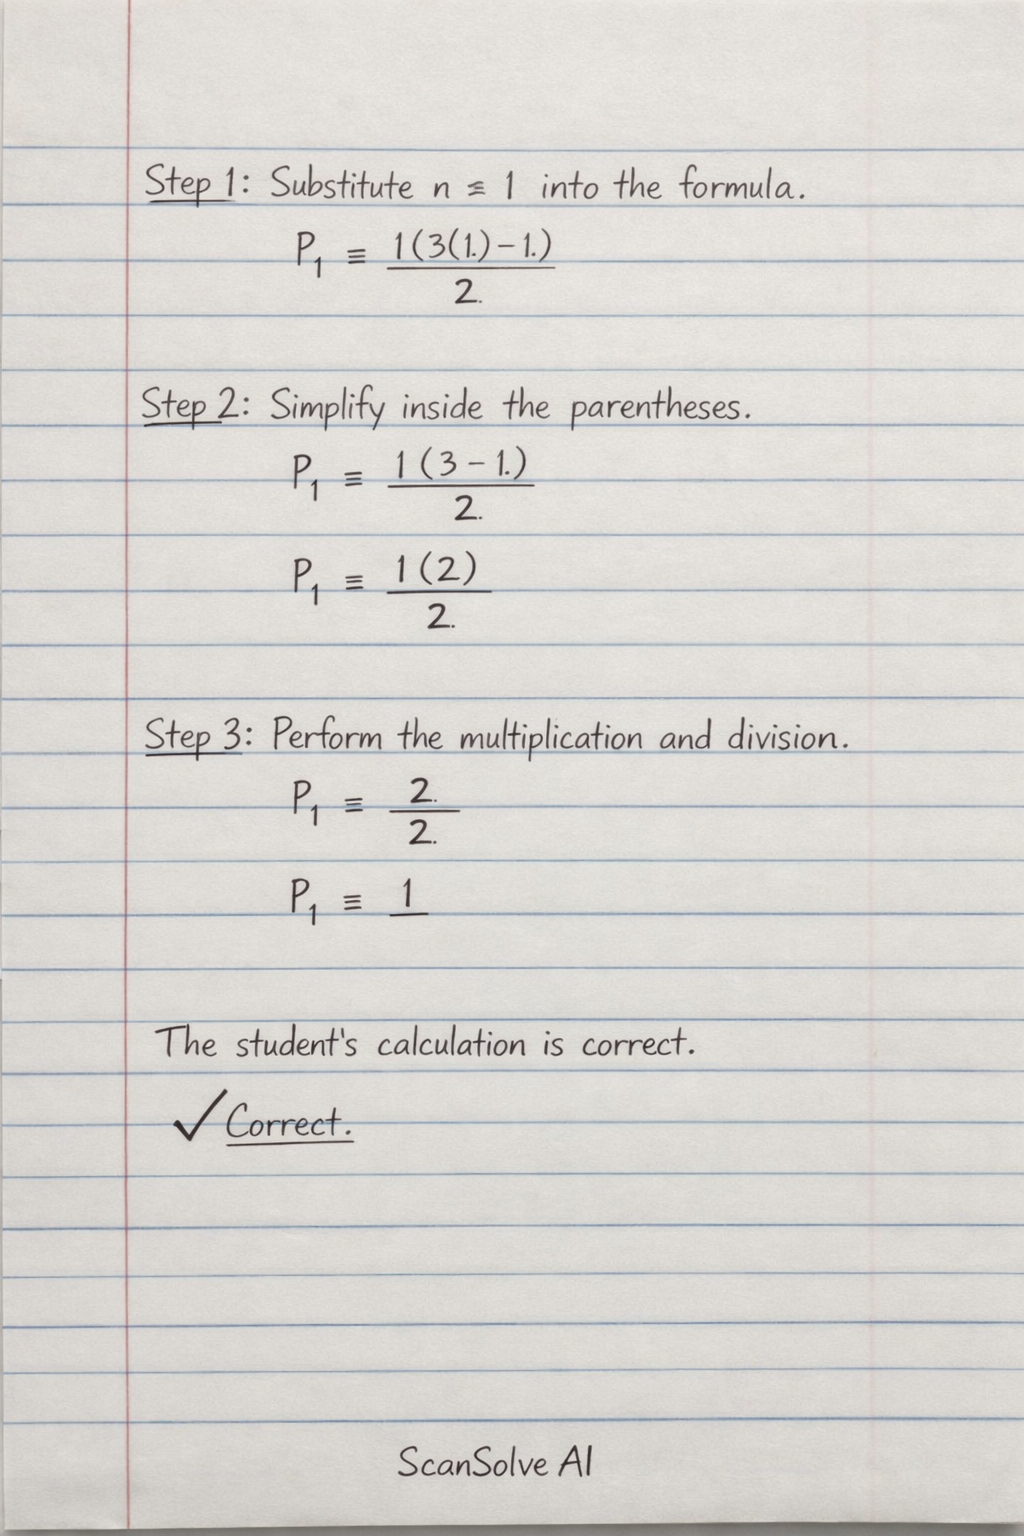 Step 1: Substitute n ≡ 1 into the formula.
P₁ ≡ 1(3(1.)-1.)
2.
Step 2: Simplify inside the parentheses.
P₁ ≡ 1(3-1.)
2.
P₁ ≡ 1(2)
2.
Step 3: Perform the multiplication and division.
P₁ ≡ 2.
2.
P₁ ≡ 1
The student's calculation is correct.
✓ Correct.
ScanSolve AI